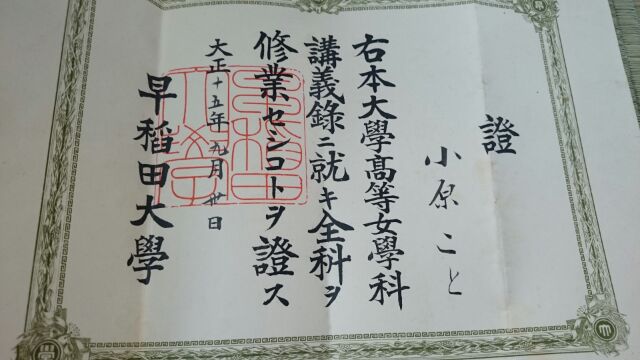 證
小原こと
右本大學高等女學科
講義錄ニ就キ全科ヲ
修業セシコトヲ證ス
大正十五年九月卅日
早稻田大學